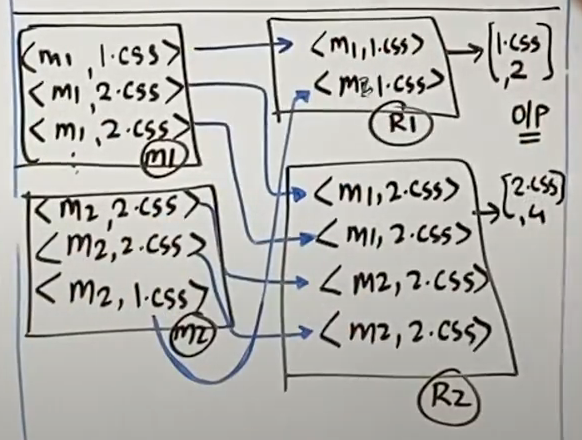 <m1, 1.css>
<m1, 2.css>
<m1, 2.css>
m1
<m2, 2.css>
<m2, 2.css>
<m2, 1.css>
m2
<m1, 1.css>
1.css>
R1
[1.css
,2]
O/P
<m1, 2.css>
<m1, 2.css>
<m2, 2.css>
<m2, 2.css>
R2
[2.css]
,4